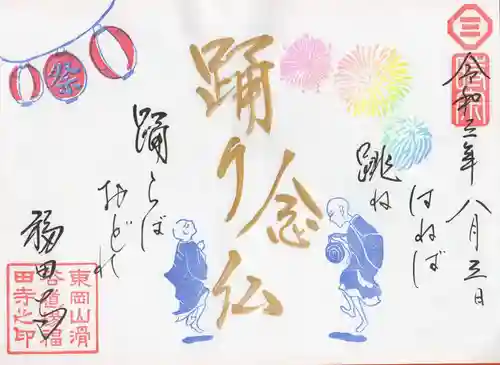 三
奉拝
令和三年八月三日
跳ね
はねば
踊り念仏
踊らば
おどれ
祭
福田寺
東岡山滑
谷道福
田寺之印